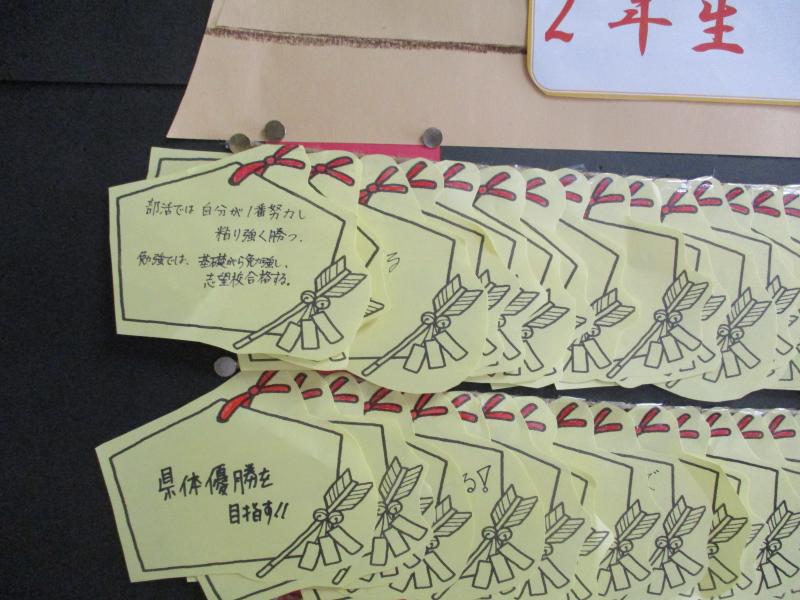 2年生
部活では自分が1番努力し
粘り強く勝つ.
勉強では、基礎から勉強し、
志望校合格する。
る
県体優勝を
目指す!!
る!!